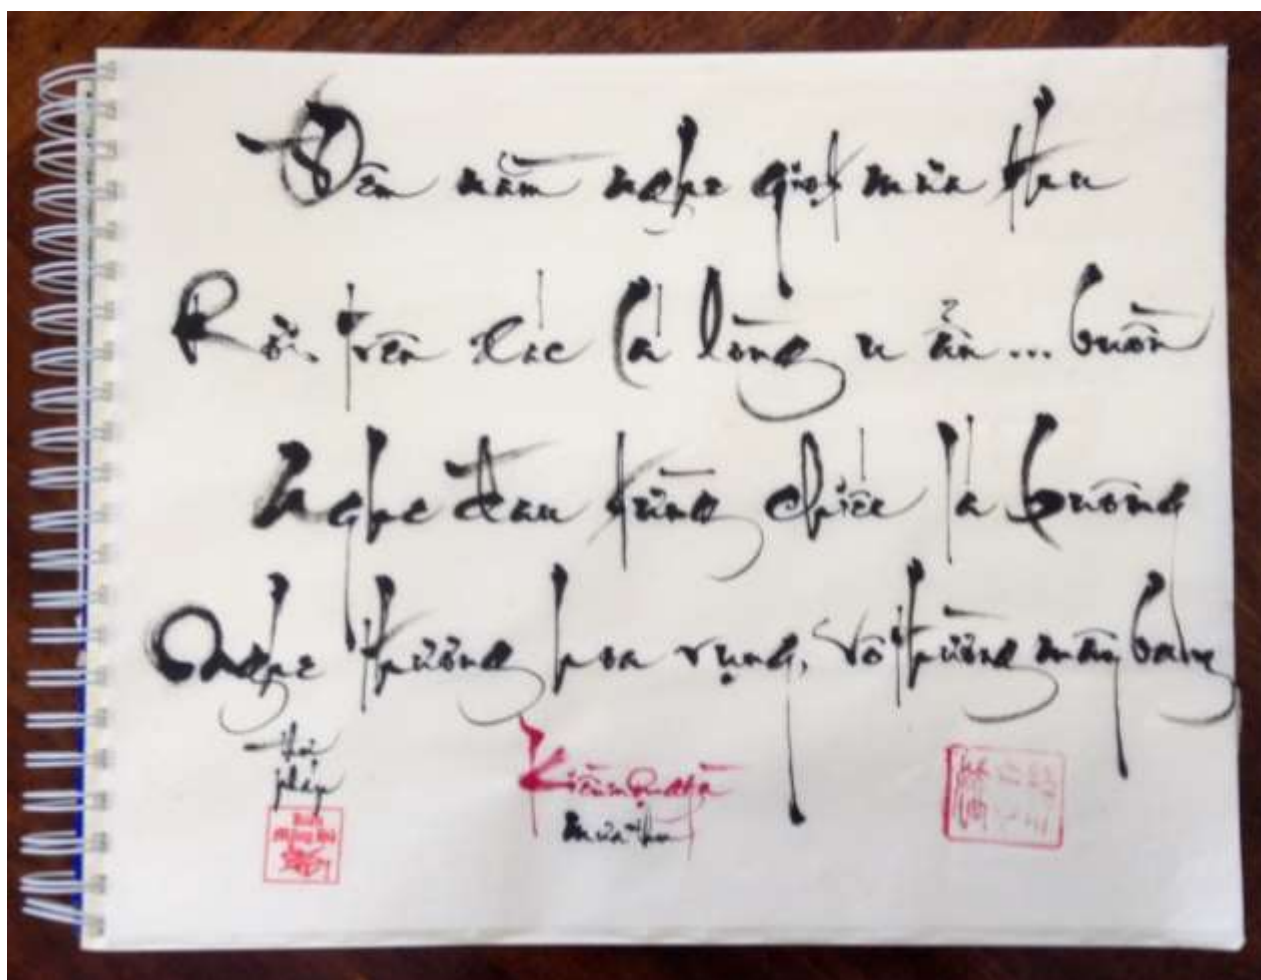 Đêm nằm nghe giọt mưa thu
Rơi trên xác lá lòng u ẩn... buồn
Nghe đau từng chiếc lá buông
Nghe thương hoa rụng, vô thường mây bay
thư
pháp
Kiều Mộng Hà
mưa thu